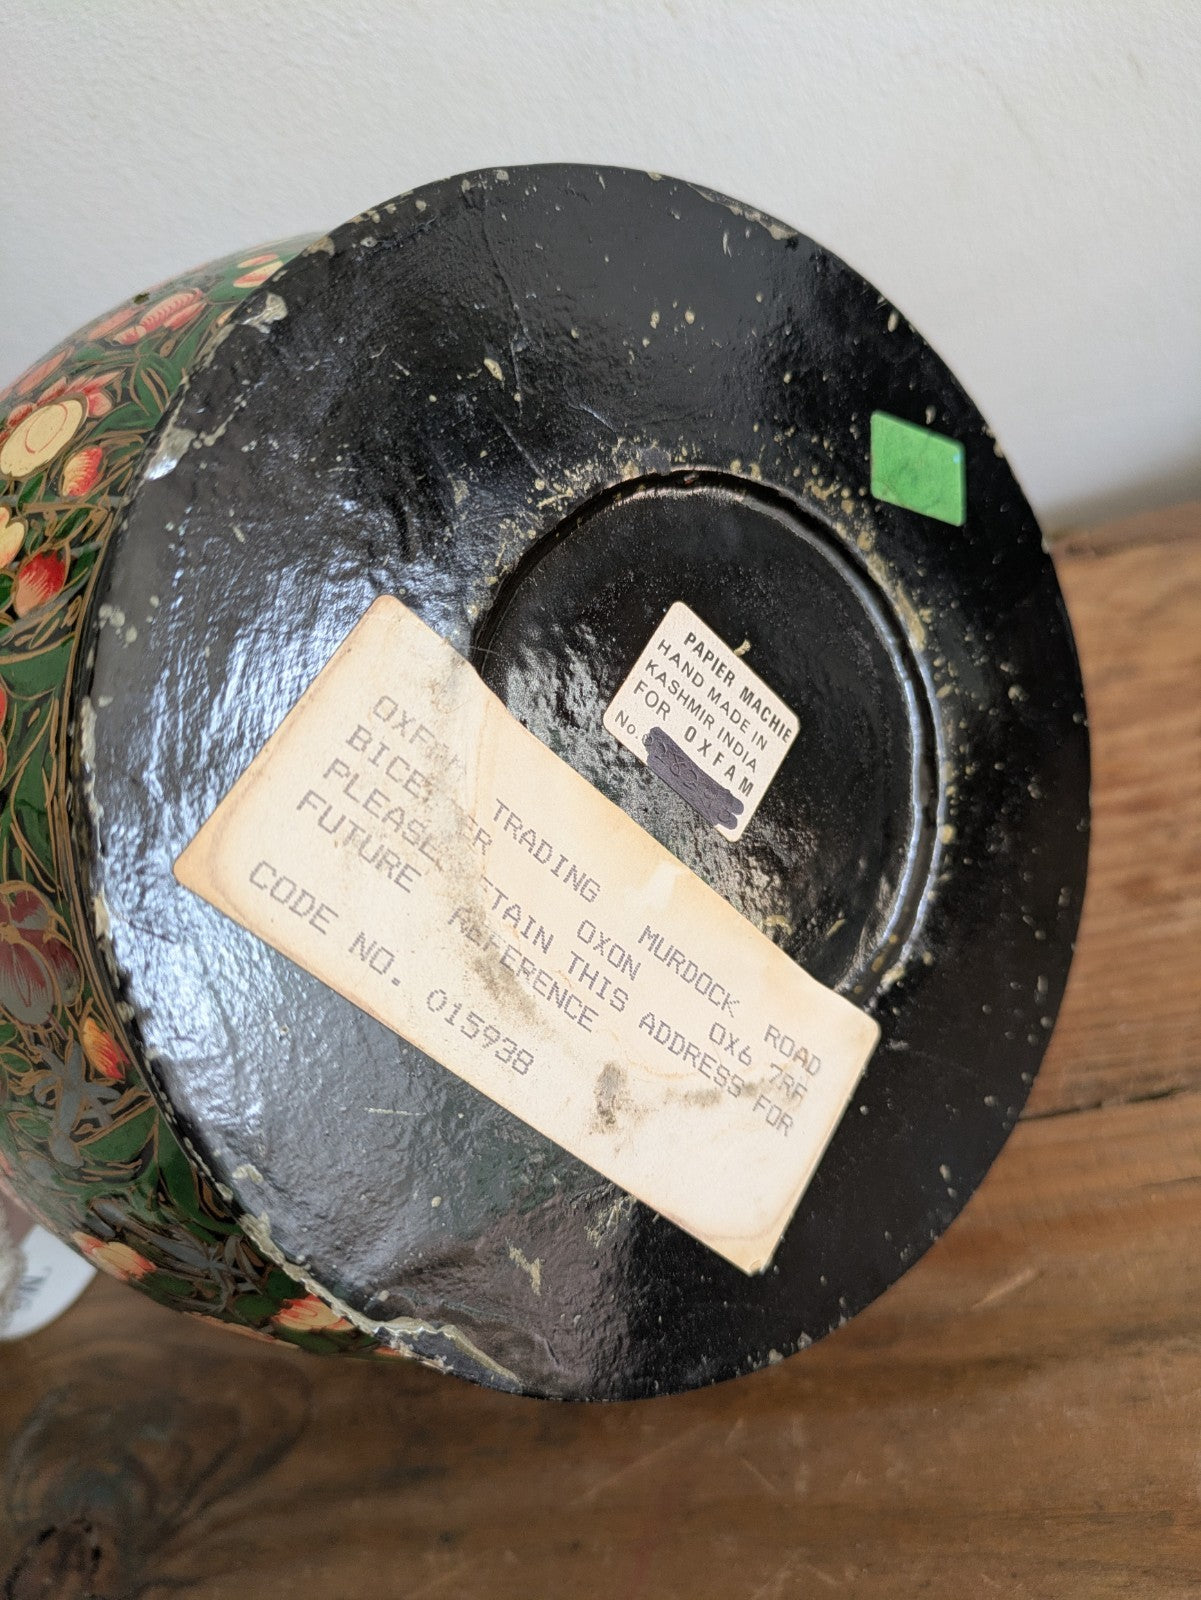 PAPIER MACHIE
HAND MADE IN
KASHMIR INDIA
FOR OXFAM
No.
TRADING MURDOCK ROAD
OXON OX6 7RF
THIS ADDRESS FOR
FUTURE REFERENCE
CODE NO. 015938